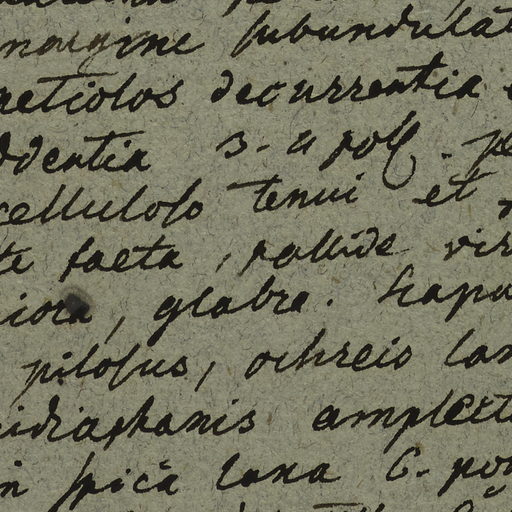 margine subundulat
petiolos decurrentia
ddentia 3-4 poll. pe
celluloso tenui et
te faeta, pallide vir
iora, glabra. Scapu
pilosus, ochreis lan
idiaphanis amplect
in spica laxa 6-pol